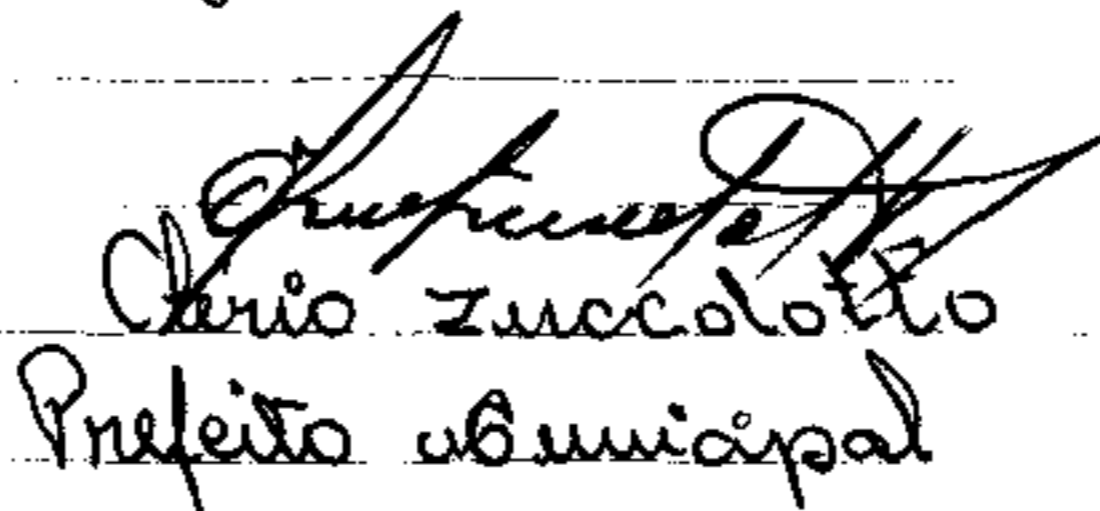 Clério Zuccolotto
Prefeito Municipal